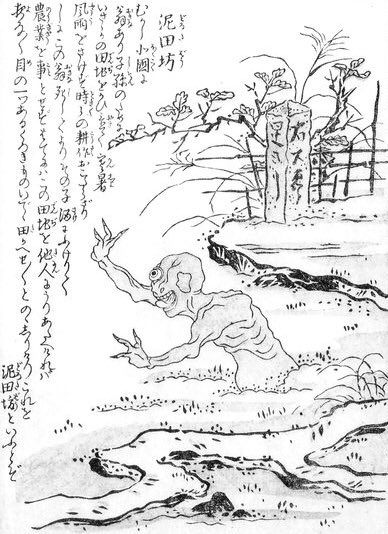 泥田坊
むかし北國に
翁あり子孫のために
いさゝかの田地をかひ置て寒暑
風雨をさけず時々の耕作おこたらざり
しにこの翁死してよりその子酒にふけりて
農業を事とせずはてにはこの田地を他人にうりあたへければ
夜な〱目の一つあるくろきものいでて田かへせ〱とのゝしりけりこれを
泥田坊といふとぞ